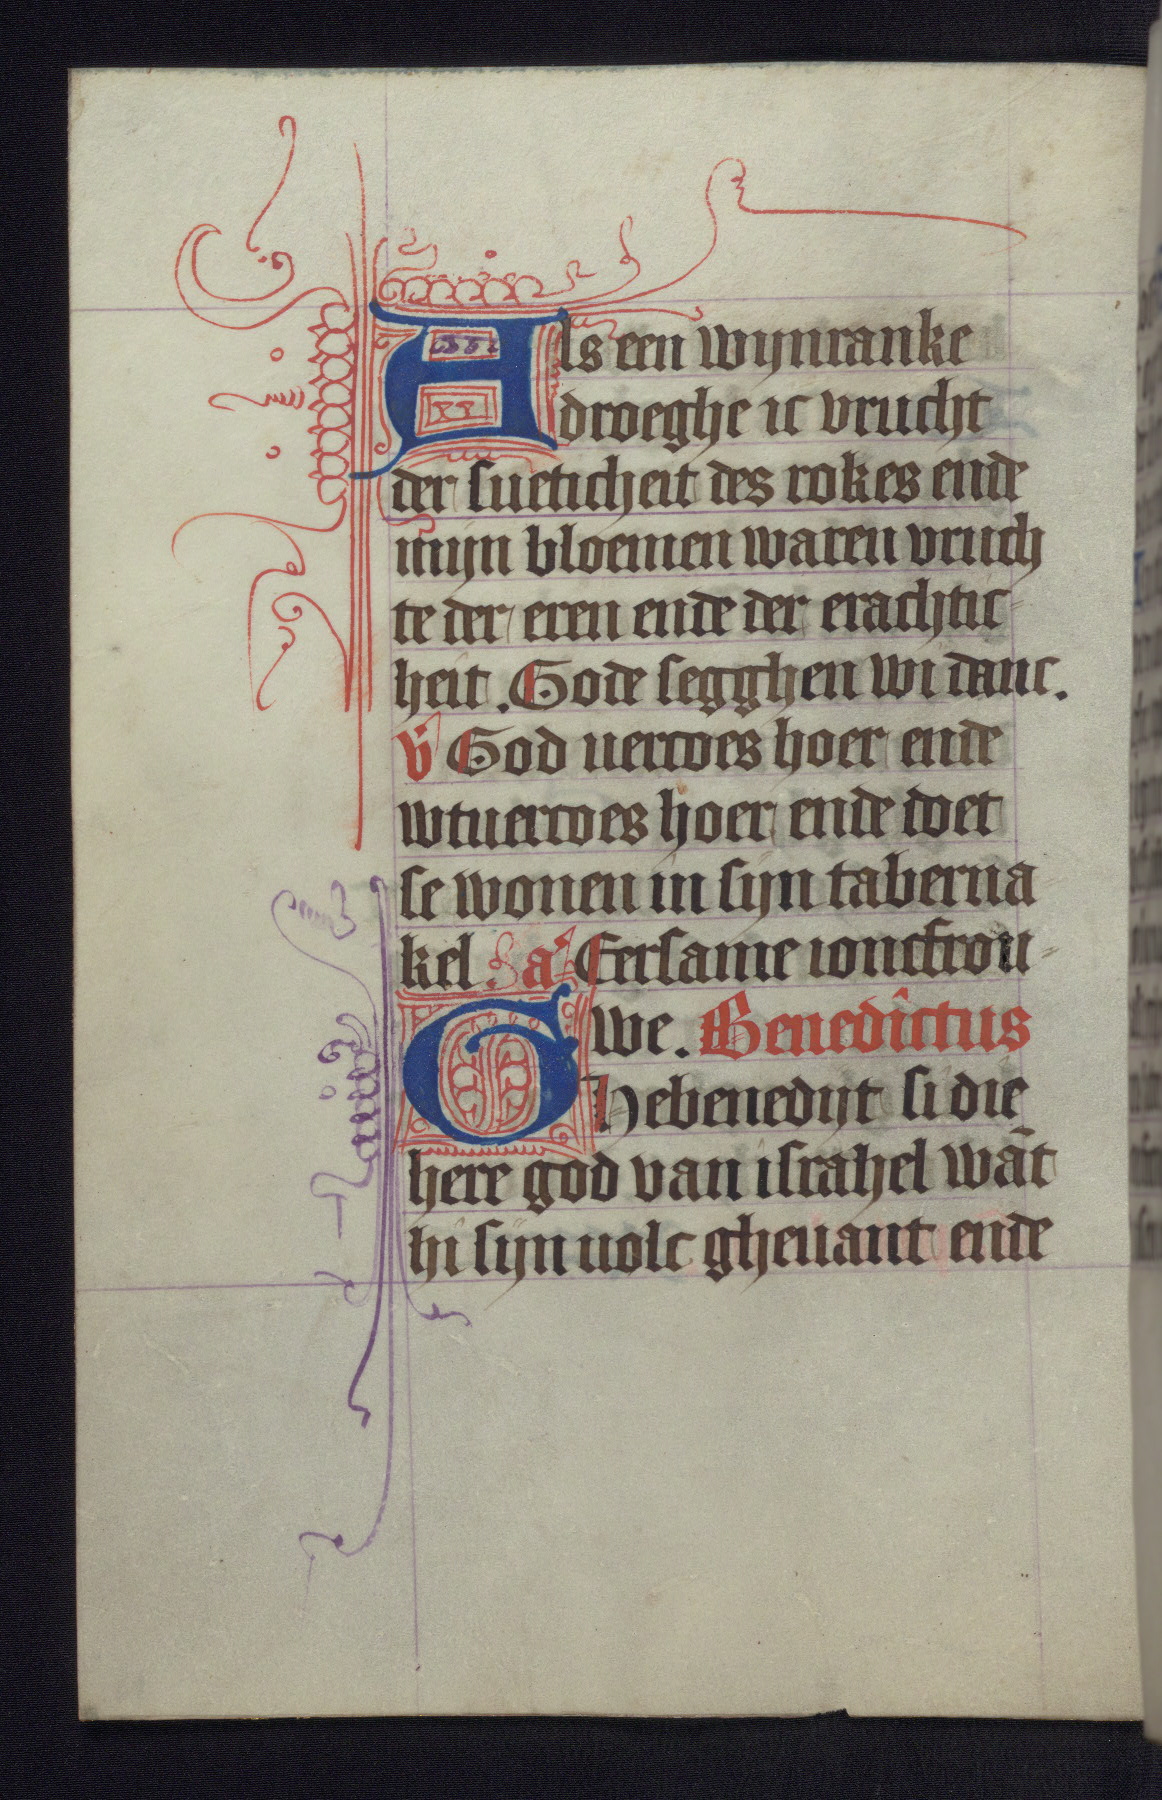 Als een wijnranke
droeghe ic vrucht
der sueticheit des rokes ende
mijn bloemen waren vruch
te der eren ende der erachtic
heit. Gode segghen wi danc.
v̕ God uercoes hoer ende
wtuercoes hoer ende doet
se wonen in sijn taberna
kel a᷎ Eersame ioncfrou
we. Benedictus
Ghebenedijt si die
here god van israhel wāt
hi sijn uolc gheuant ende